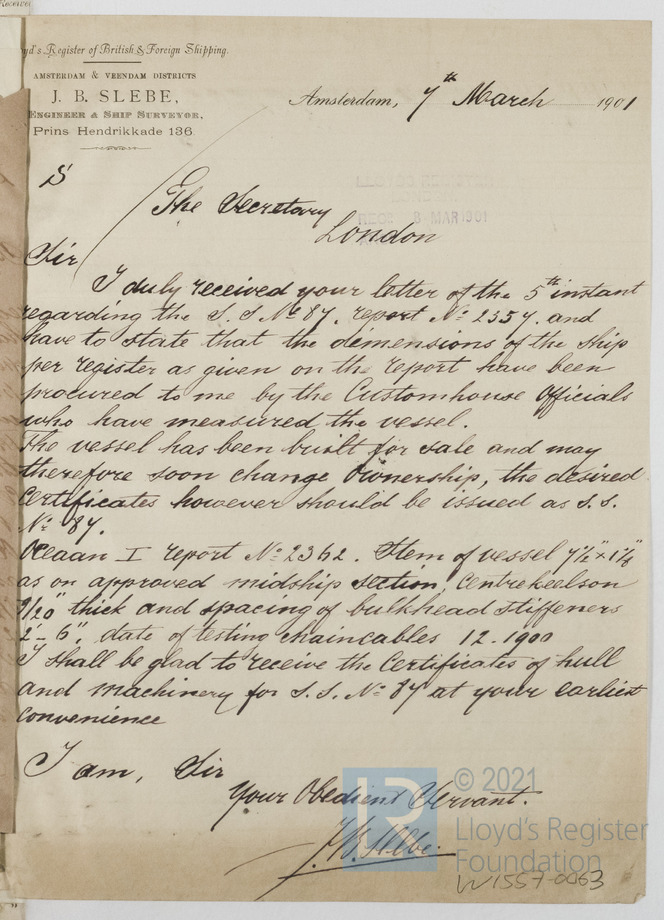 oyd's Register of British & Foreign Shipping.
AMSTERDAM & VEENDAM DISTRICTS
J. B. SLEBE,
ENGINEER & SHIP SURVEYOR,
Prins Hendrikkade 136.
Amsterdam, 7th March 1901
S
The Secretary
LLOYDS REGISTER
RECD 8 MAR 1901
London
Sir
I duly received your letter of the 5th instant
regarding the S.S. No 87. report No 2357. and
have to state that the dimensions of the ship
per register as given on the report have been
procured to me by the Customhouse Officials
who have measured the vessel.
The vessel has been built for sale and may
therefore soon change Ownership, the desired
Certificates however should be issued as S.S.
No 87.
Oceaan I report No 2362. Stem of vessel 7½" x
as on approved midship section, Centrekeelson
9/20" thick and spacing of bulkhead stiffeners
2'-6", date of testing chaincables 12-1900
I shall be glad to receive the Certificates of hull
and machinery for S.S. No 87 at your earliest
convenience
I am, Sir
Your Obedient Servant.
J. B. Slebe.
© 2021
Lloyd's Register
Foundation
W1557-0063